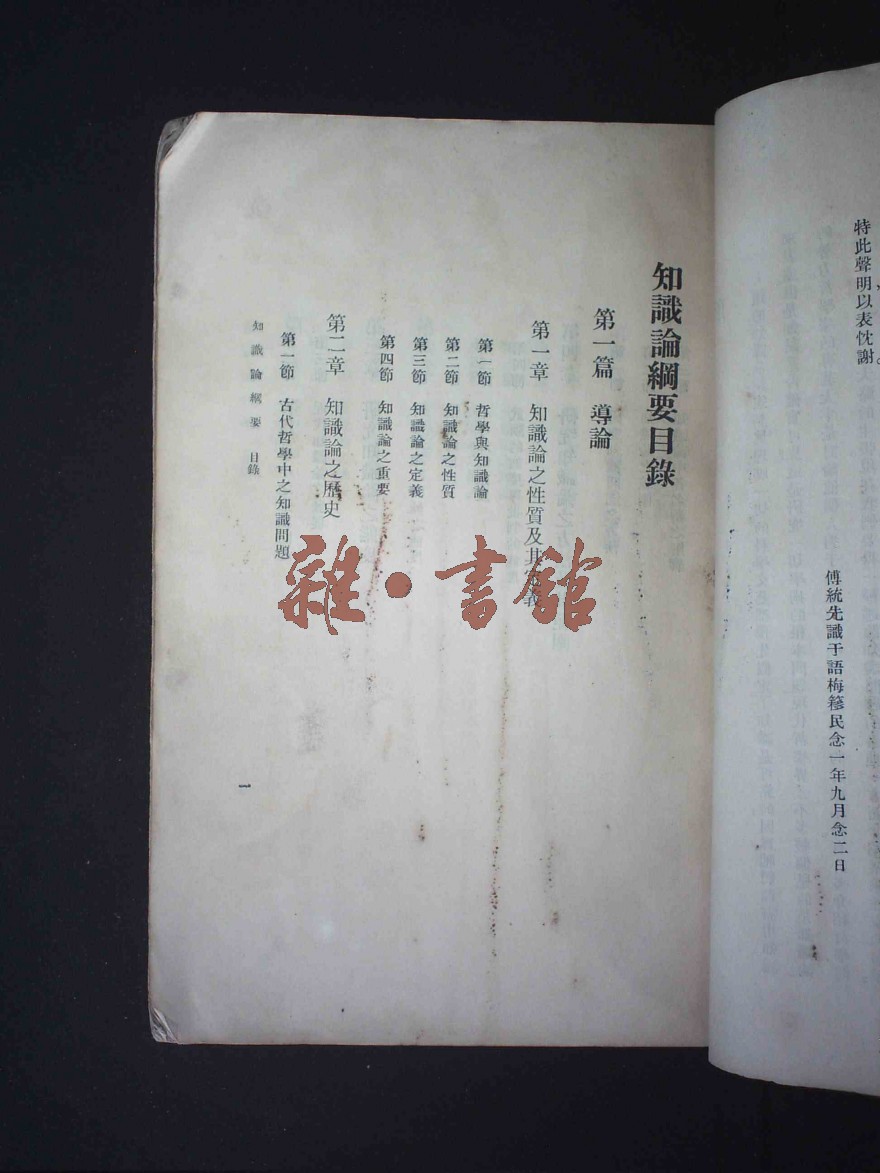 特此聲明以表忱謝。
傅統先識于語梅簃民念一年九月念二日
知識論綱要目錄
第一篇 導論
第一章 知識論之性質及其定義
第一節 哲學與知識論
第二節 知識論之性質
第三節 知識論之定義
第四節 知識論之重要
第二章 知識論之歷史
第一節 古代哲學中之知識問題
知識論綱要 目錄
一
雜·書館